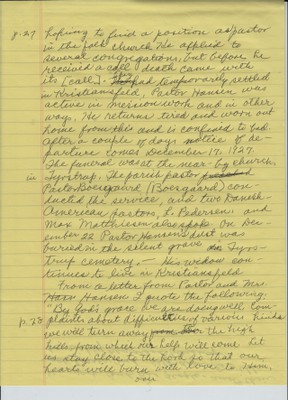 8-27 hoping to find a position as pastor
in the folk church. He applied to
several congregations, but before he
received a call death came with
its [call]. and temporarily settled
in Kristiansfeld, Pastor Hansen was
active in mission work and in other
way. He returns tired and worn out
home from this and is confined to bed.
After a couple of days notice of de-
parture comes December 17, 1927.
The funeral was at the near-by church,
in Tyrstrup. The parish pastor
Pastor Boesgaard (Boesgaard) con-
ducted the service, and two Danish-
American pastors, L. Pedersen and
Max Matthiesen also spoke. On Dec-
ember 22 Pastor Hansen's dust was
buried in the silent grave in Tyrs-
trup cemetery. — His widow con-
tinues to live in Kristiansfeld
From a letter from Pastor and Mrs.
Hansen I quote the following:
"By God's grace we are doing well. Com-
plaints about difficulties of various kinds
we will turn away from the high
hills, from which our help will come. Let
us stay close to the Lord so that our
hearts will burn with love to Him,
over